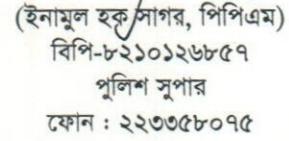 (ইনামুল হক সাগর, পিপিএম)
বিপি-৮২১০১২৬৮৫৭
পুলিশ সুপার
ফোন : ২২৩৩৫৮০৭৫